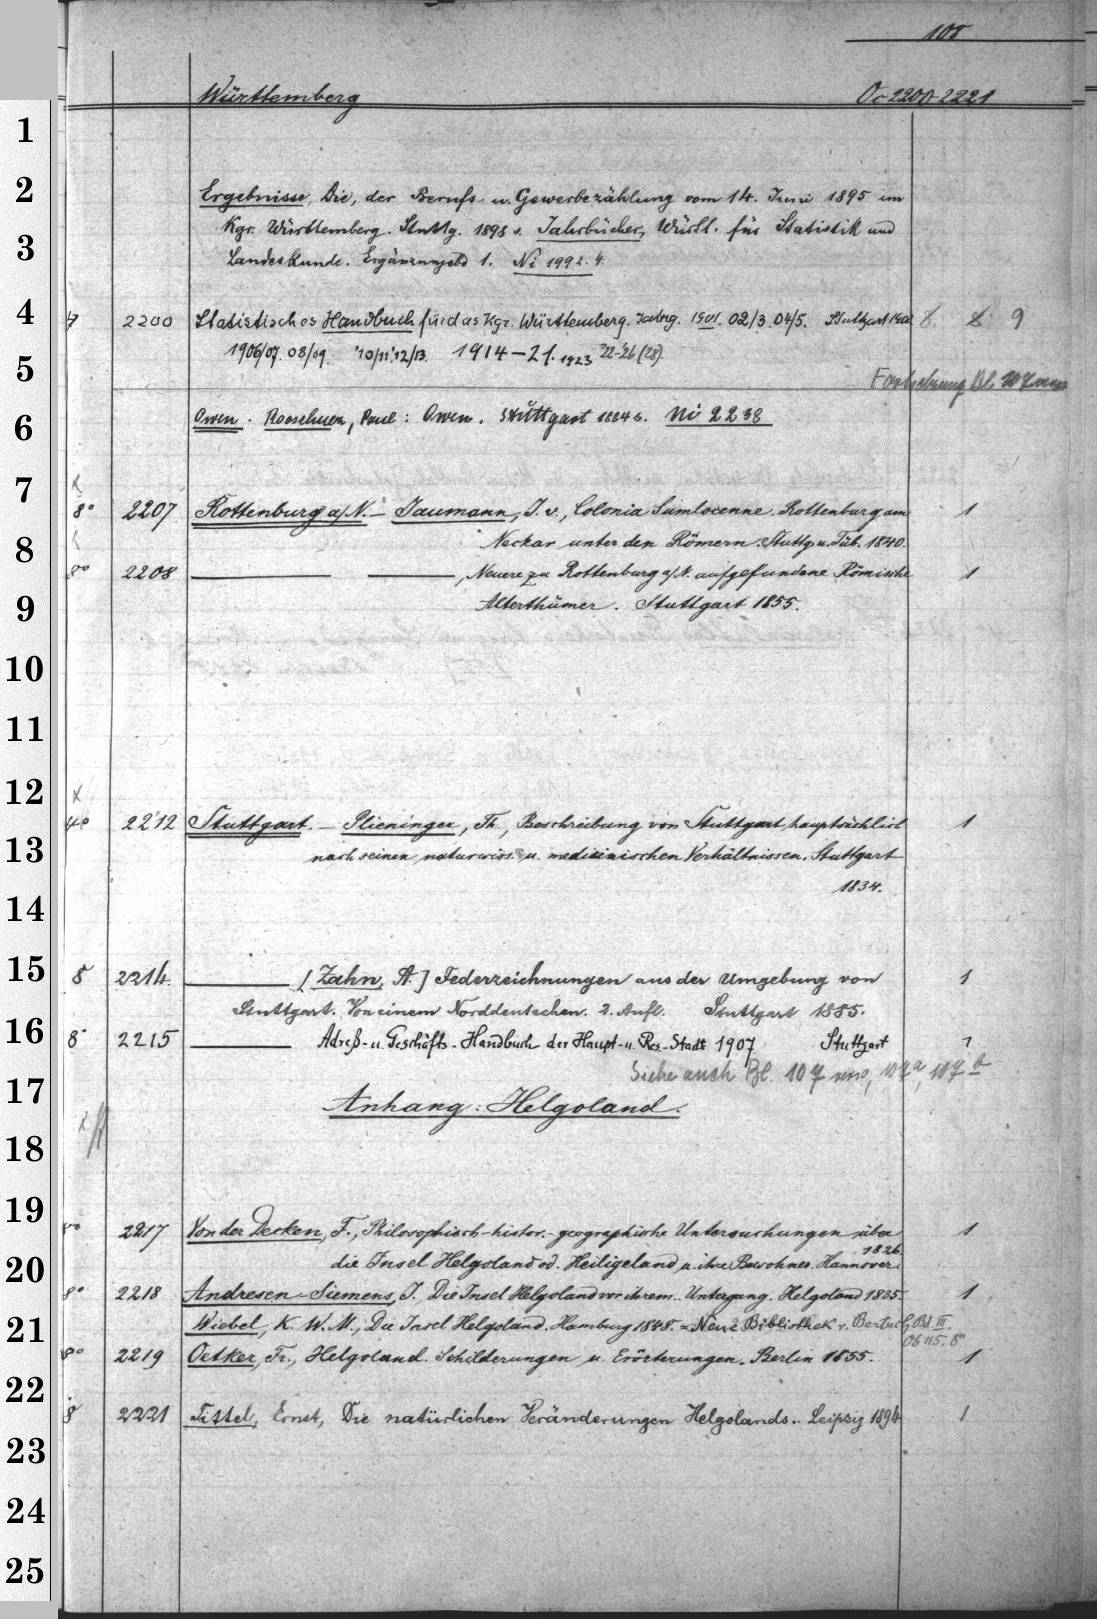 108
Württemberg Oc 2200-2221
1
2
3
4
5
6
7
8
9
10
11
12
13
14
15
16
17
18
19
20
21
22
23
24
25
Ergebnisse, Die, der Berufs- u. Gewerbezählung vom 14. Juni 1895 im
Kgr. Württemberg. Stuttg. 1898 s. Jahrbücher, Württ. für Statistik und
Landeskunde. Ergänzungsbd 1. Ni 1992. 4.
4 2200 Statistisches Handbuch für das Kgr. Württemberg. Jahrg. 1901. 02/3. 04/5. Stuttgart 8 9
1906/07. 08/09. '10/11. '12/13. 1914-21. 1923 '22-'26 (28).
Fortsetzung Bl. 107 verso
Owen. Rooschuez, Paul: Owen. Stuttgart 1884 s. Ni 2238
8° 2207 Rottenburg a/N. - Jaumann, I. v., Colonia Sumlocenne. Rottenburg am 1
Neckar unter den Römern. Stuttg. u. Tüb. 1840.
8° 2208 , Neuere zu Rottenburg a/N. aufgefundene Römische 1
Alterthümer. Stuttgart 1855.
4° 2212 Stuttgart. - Plieninger, Th., Beschreibung von Stuttgart, hauptsächlich 1
nach seinen naturwiss. u. medicinischen Verhältnissen. Stuttgart
1834.
8 2214 [Zahn, A.] Federzeichnungen aus der Umgebung von 1
Stuttgart. Von einem Norddeutschen. 2. Aufl. Stuttgart 1885.
8° 2215 Adreß- u. Geschäfts-Handbuch der Haupt- u. Res.-Stadt 1907 Stuttgart 1
Siehe auch Bl. 107 verso, 107a, 107b
Anhang: Helgoland.
8° 2217 Von der Decken, F., Philosophisch-histor.-geographische Untersuchungen über 1
die Insel Helgoland od. Heiligeland u. ihre Bewohner. Hannover 1826.
8° 2218 Andresen-Siemens, J. Die Insel Helgoland vor ihrem Untergang. Helgoland 1835. 1
Wiebel, K. W. M., Die Insel Helgoland. Hamburg 1848. = Neue Bibliothek v. Bertuch, Bd III.
Ob 115. 8°
8° 2219 Oetker, Fr., Helgoland. Schilderungen u. Erörterungen. Berlin 1855. 1
8 2221 Tittel, Ernst, Die natürlichen Veränderungen Helgolands. Leipzig 1894 1